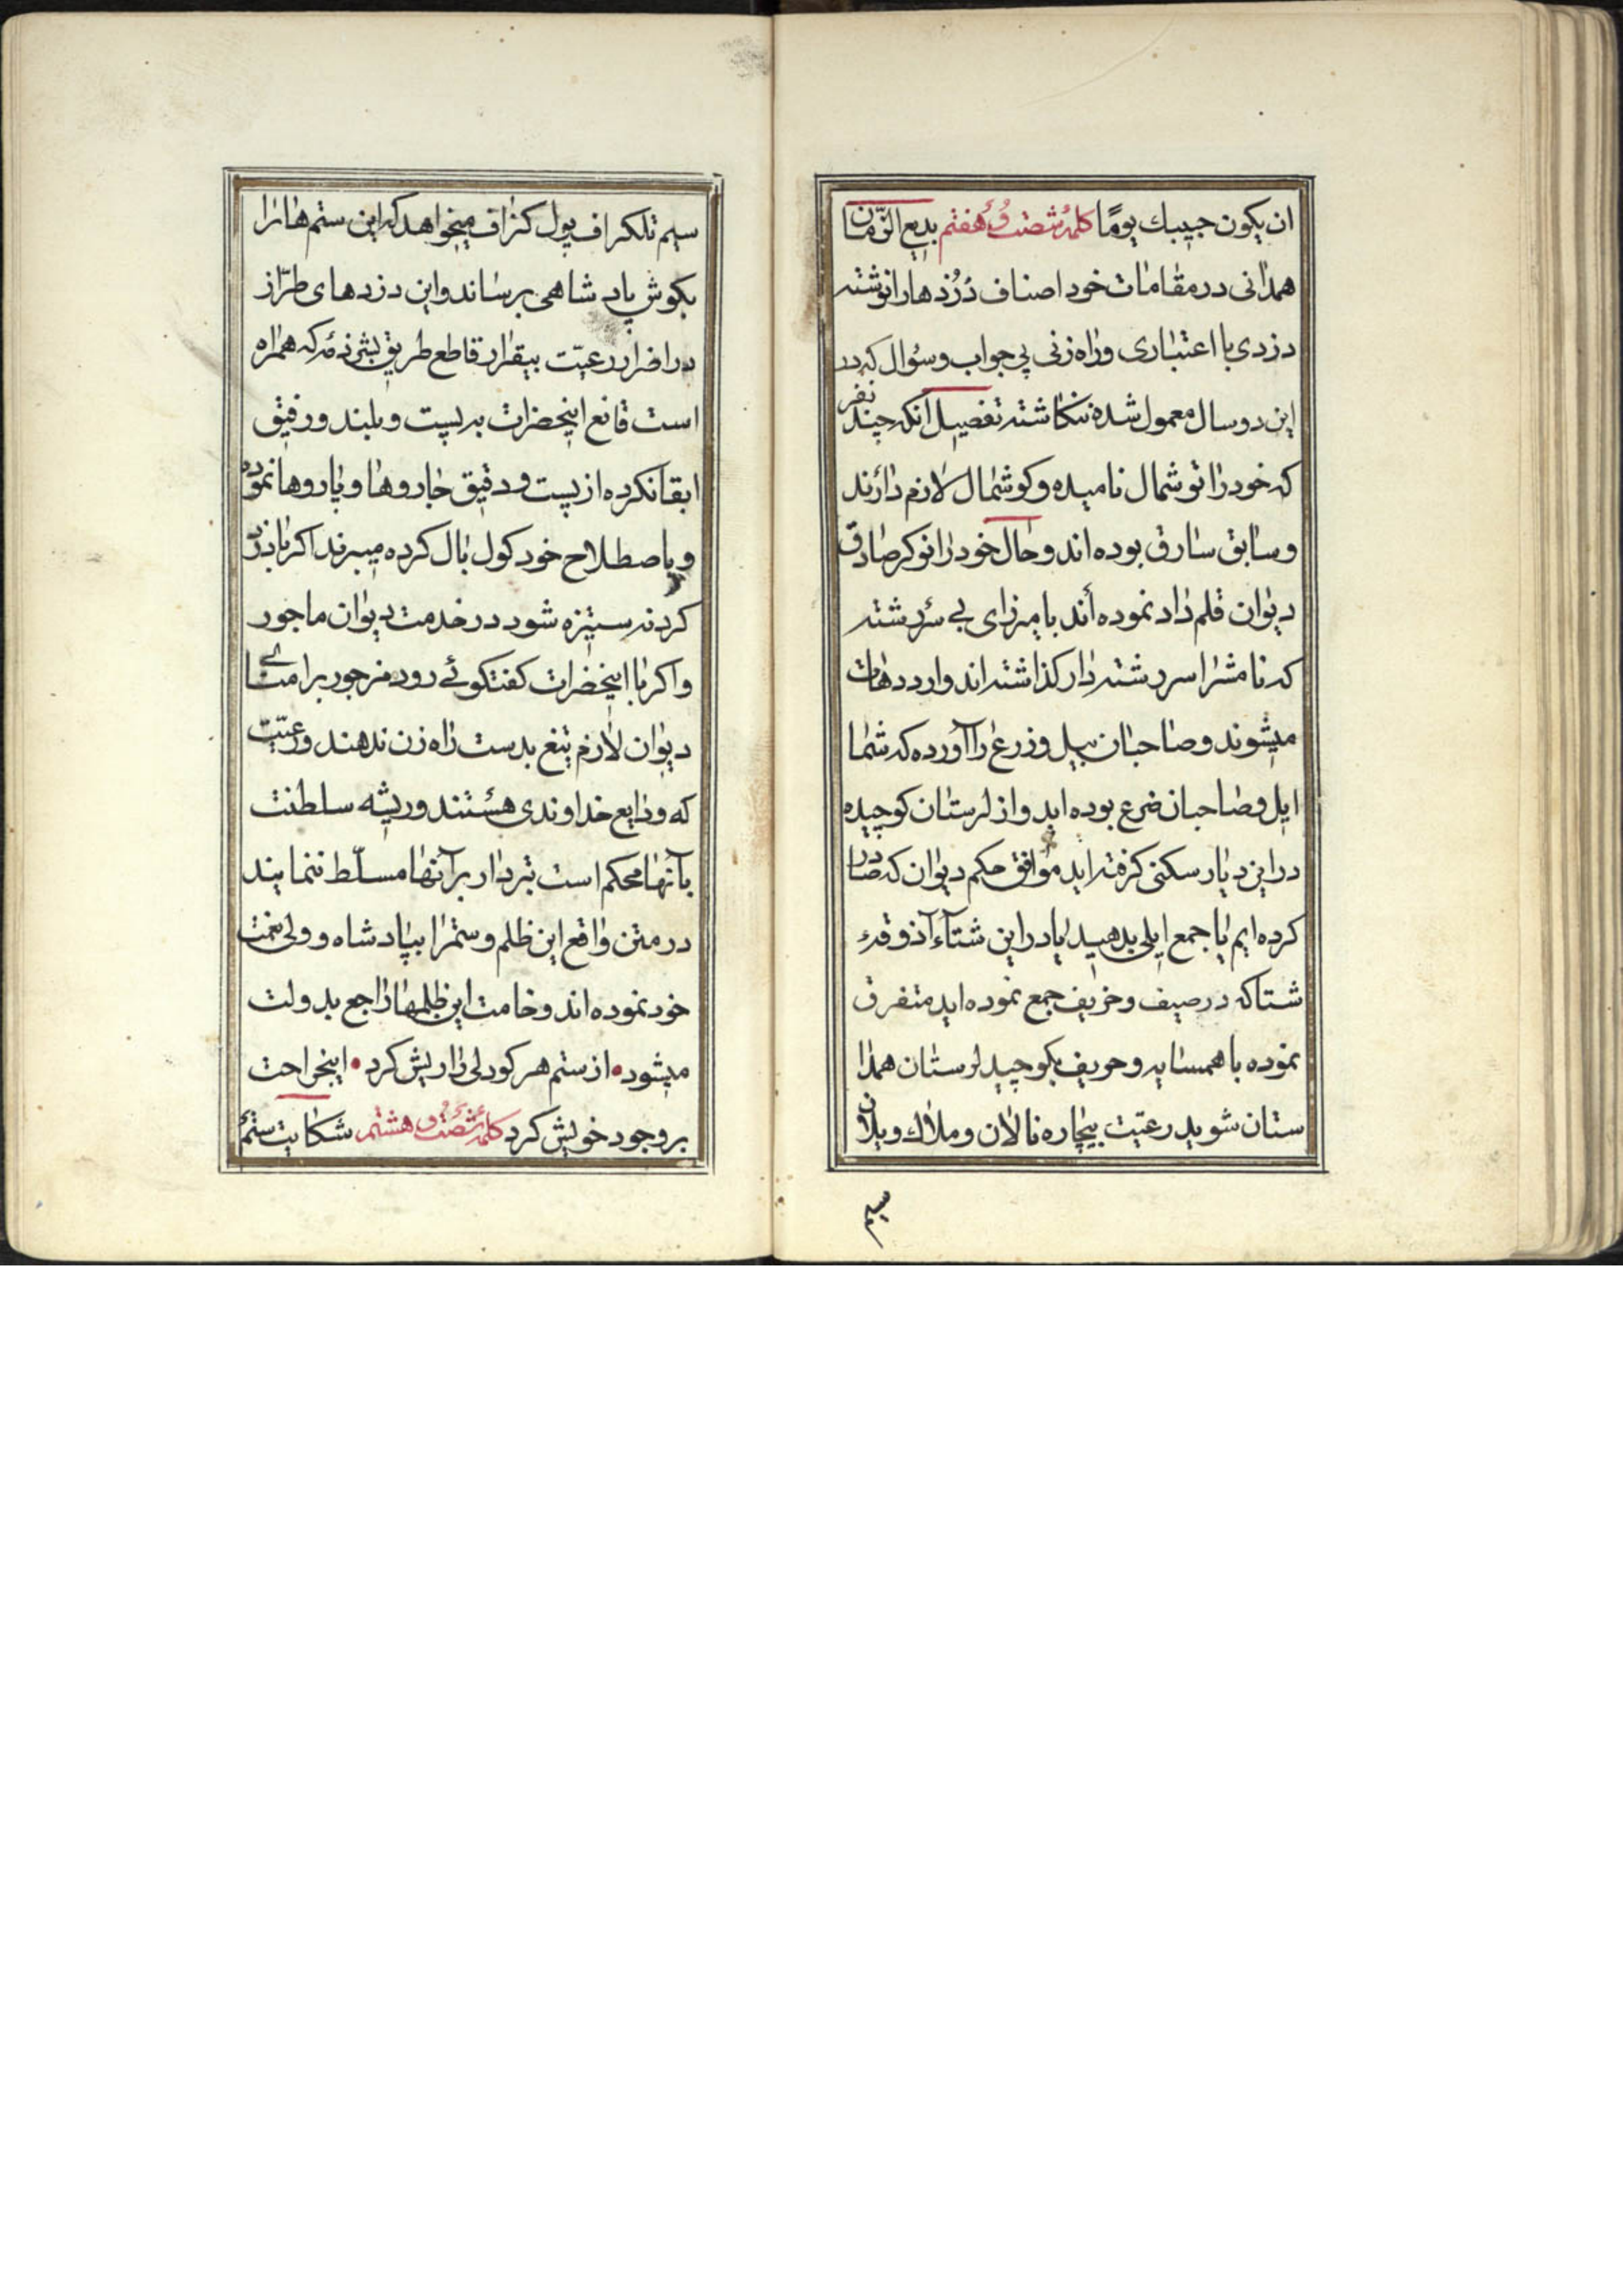 ان یکون حبیبك یومًا کلمهٔ شصت و هفتم بدیع الزّمان
همدانی در مقامات خود اصناف دُزدها را نوشته
دزدی با اعتباری و راه زنی بی جواب و سؤال که در
این دو سال معمول شده ننکاشته تفصیل آنکه چند نفر
که خود را توشمال نامیده و کوشمال لازم دارند
و سابق سارق بوده اند و حال خود را نوکر صادق
دیوان قلم داد نموده أند با میرزای بی سررشته
که نامش را سررشته دار کذاشته اند وارد دهات
میشوند و صاحبان بیل و زرع را آورده که شما
ایل و صاحبان ضرع بوده اید و از لرستان کوچیده
در این دیار سکنی کرفته اید موافق حکم دیوان که صادر
کرده ایم یا جمع ایلی بدهید یا در این شتآء آذوقهٔ
شتا که در صیف و خریف جمع نموده اید متفرق
نموده با همسایه و حریف بکوچید لرستان همدا
ستان شوید رعیّت بیچاره نالان و ملاك ویلان
سیم
سیم تلکراف پول کزاف میخواهد که این ستم ها را
بکوش پادشاهی برساند و این دزدهای طرّاز
در اضرار رعیّت بیقرار قاطع طریق که همراه
است قانع اینحضرات به پست و بلند و رفیق
ابقا نکرده از پست و دقیق جاروها و پاروها نموده
و باصطلاح خود کول بال کرده میبرند اکر با دزد
کردنه ستیزه شود در خدمت دیوان ماجور
و اکر با اینحضرات کفتکوئے رود مزجور برامنای
دیوان لازم تیغ بدست راه زن ندهند و رعیّت
که ودایع خداوندی هستند و ریشه سلطنت
بآنها محکم است تبردار بر آنها مسلّط ننمایند
در متن واقع این ظلم و ستم را بپادشاه و ولی نعمت
خود نموده اند وخامت این ظلمها راجع بدولت
میشود • از ستم هر کو دلی را ریش کرد • اینجراحت
بر وجود خویش کرد کلمهٔ شصت و هشتم شکایت ستم